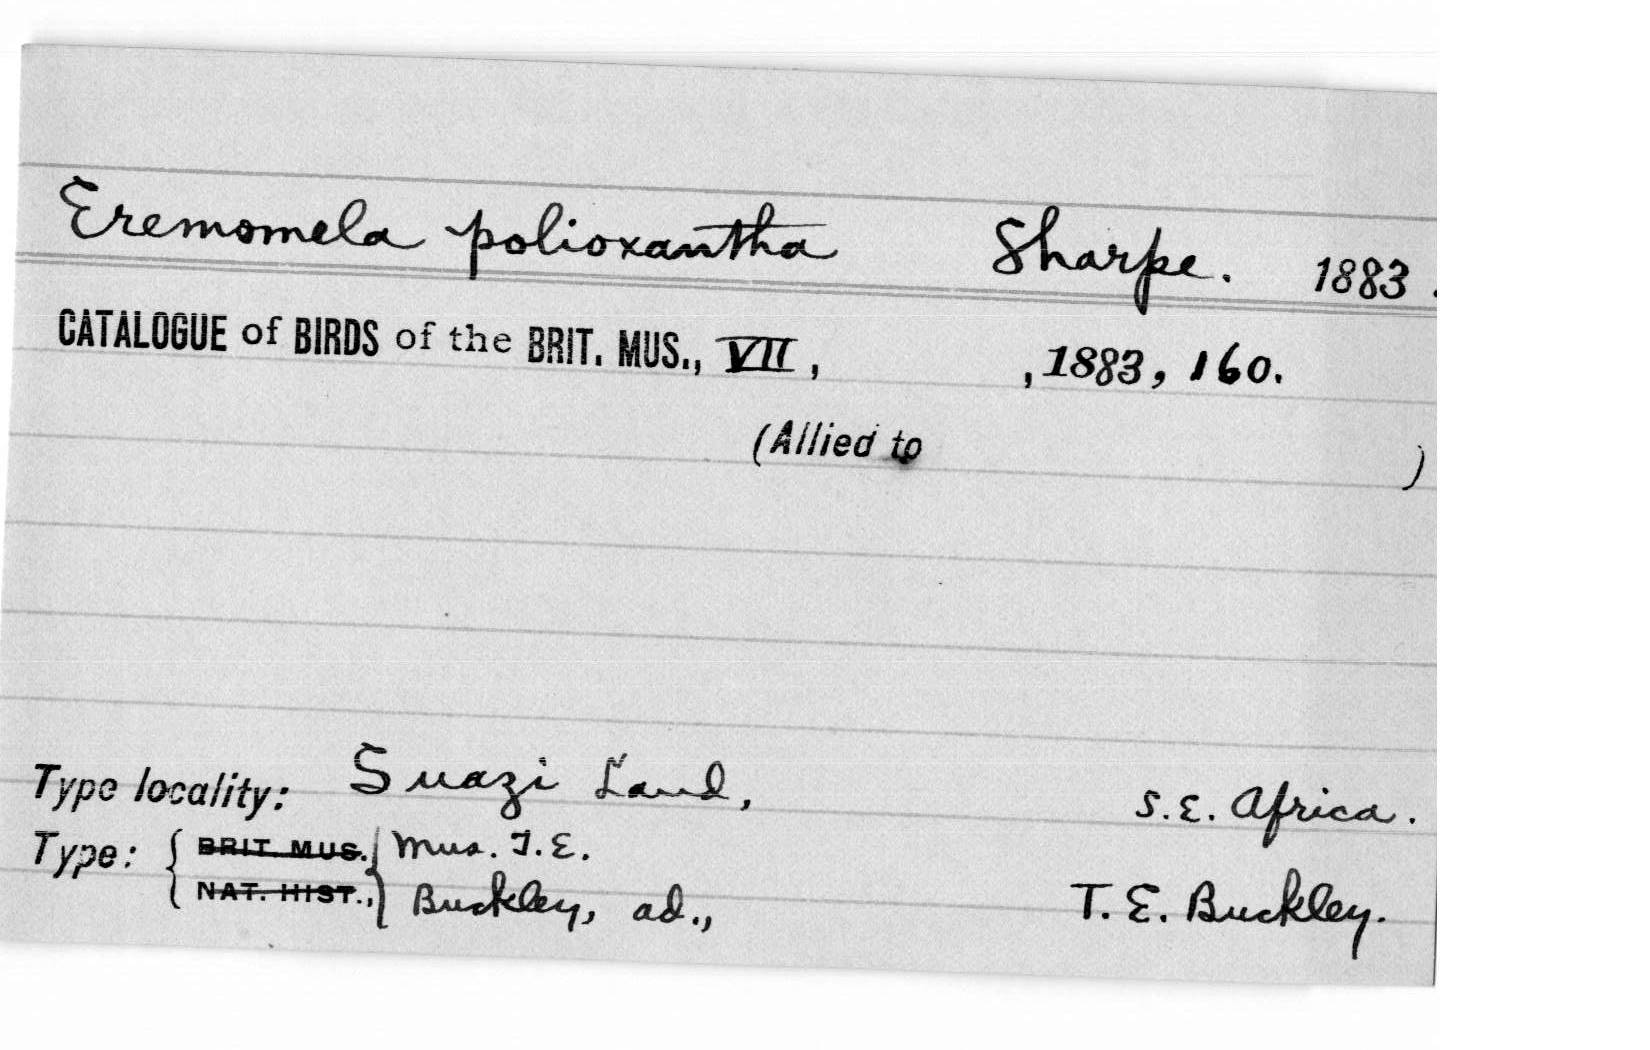 Eremomela polioxantha Sharpe. 1883.
CATALOGUE of BIRDS of the BRIT. MUS., VII, , 1883, 160.
(Allied to )
Type locality: Suazi Land, S.E. Africa.
Type: { BRIT. MUS. } Mus. T.E.
NAT. HIST., Buckley, ad., T. E. Buckley.